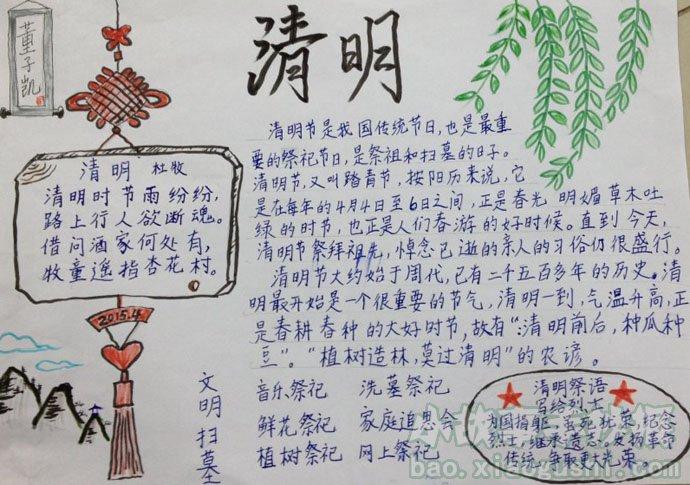 董子凯
清明
清明 杜牧
清明时节雨纷纷,
路上行人欲断魂。
借问酒家何处有,
牧童遥指杏花村。
2015.4
清明节是我国传统节日,也是最重
要的祭祀节日,是祭祖和扫墓的日子。
清明节,又叫踏青节,按阳历来说,它
是在每年的4月4日至6日之间,正是春光 明媚草木吐
绿的时节,也正是人们春游的好时候。直到今天,
清明节祭拜祖先,悼念已逝的亲人的习俗仍很盛行。
清明节大约始于周代,已有二千五百多年的历史。清
明最开始是一个很重要的节气,清明一到,气温升高,正
是春耕春种的大好时节,故有“清明前后,种瓜种
豆”。“植树造林,莫过清明”的农谚。
文明扫墓
音乐祭祀 洗墓祭祀
鲜花祭祀 家庭追思会
植树祭祀 网上祭祀
清明祭语
写给烈士
为国捐躯,虽死犹荣,纪念
烈士,继承遗志。发扬革命
传统,争取更大光荣。
bao.xiaogushi.com